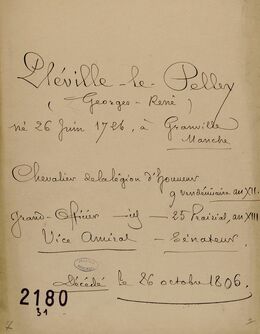 Pléville-le-Pelley
( Georges-René )
né 26 Juin 1726, à Granville
Manche
Chevalier de la légion d'honneur
9 vendémiaire an XII.
Grand-Officier _id_ 25 Prairial, an XII
Vice Amiral - Sénateur.
Décédé le 26 octobre 1806.
2180
31